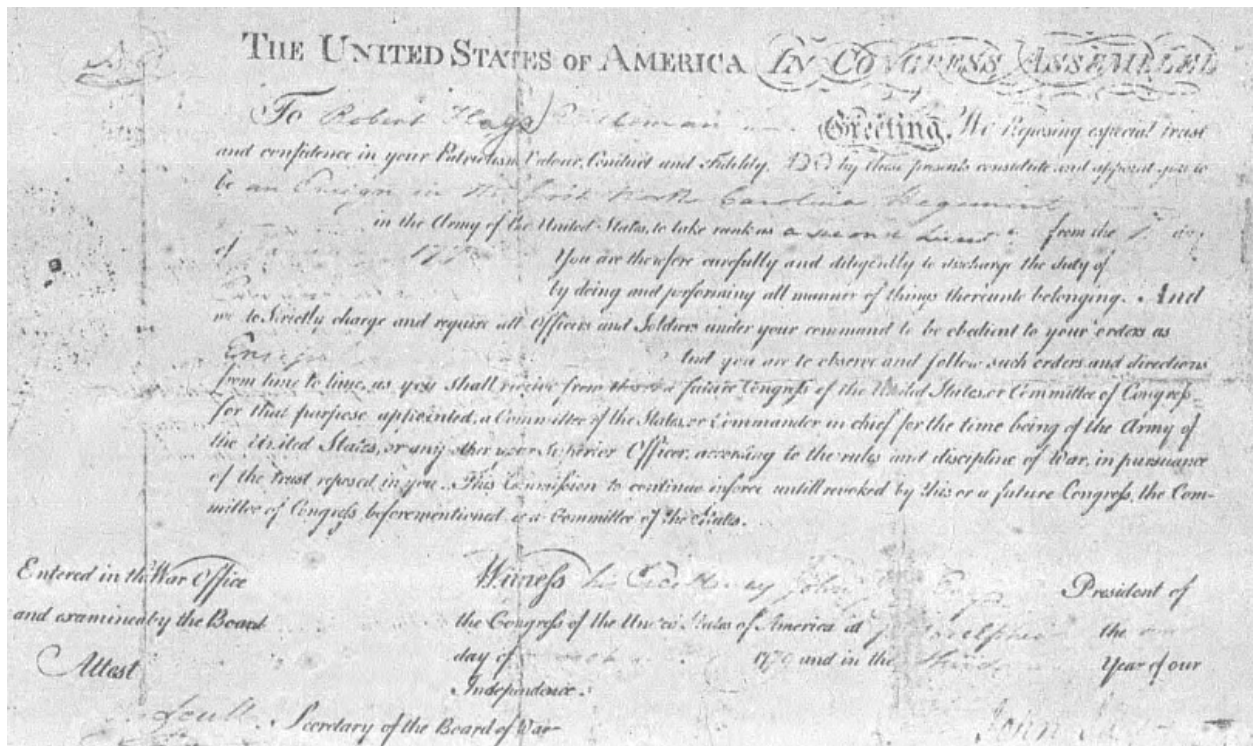 THE UNITED STATES OF AMERICA IN CONGRESS ASSEMBLED
To Robert Hays Greeting. We Reposing especial trust
and confidence in your Patriotism, Valour, Conduct and Fidelity, DO by these presents constitute and appoint you to
be an Ensign in the North Carolina Regiment
in the Army of the United States, to take rank as a second Lieut from the 1st day
of 177 You are therefore carefully and diligently to discharge the duty of
by doing and performing all manner of things thereunto belonging. And
we do Strictly charge and require all Officers and Soldiers under your command to be obedient to your orders as
Ensign And you are to observe and follow such orders and directions
from time to time, as you shall receive from this or a future Congress of the United States, or Committee of Congress
for that purpose appointed, a Committee of the States, or Commander in chief for the time being of the Army of
the United States, or any other your Superior Officer, according to the rules and discipline of War, in pursuance
of the trust reposed in you. This Commission to continue in force untill revoked by this or a future Congress, the Com-
mittee of Congress beforementioned, or a Committee of the States.
Entered in the War Office
and examined by the Board
Attest
Secretary of the Board of War
Witness his Excellency John Jay President of
the Congress of the United States of America at Philadelphia the
day of 1779 and in the third Year of our
Independence.
John